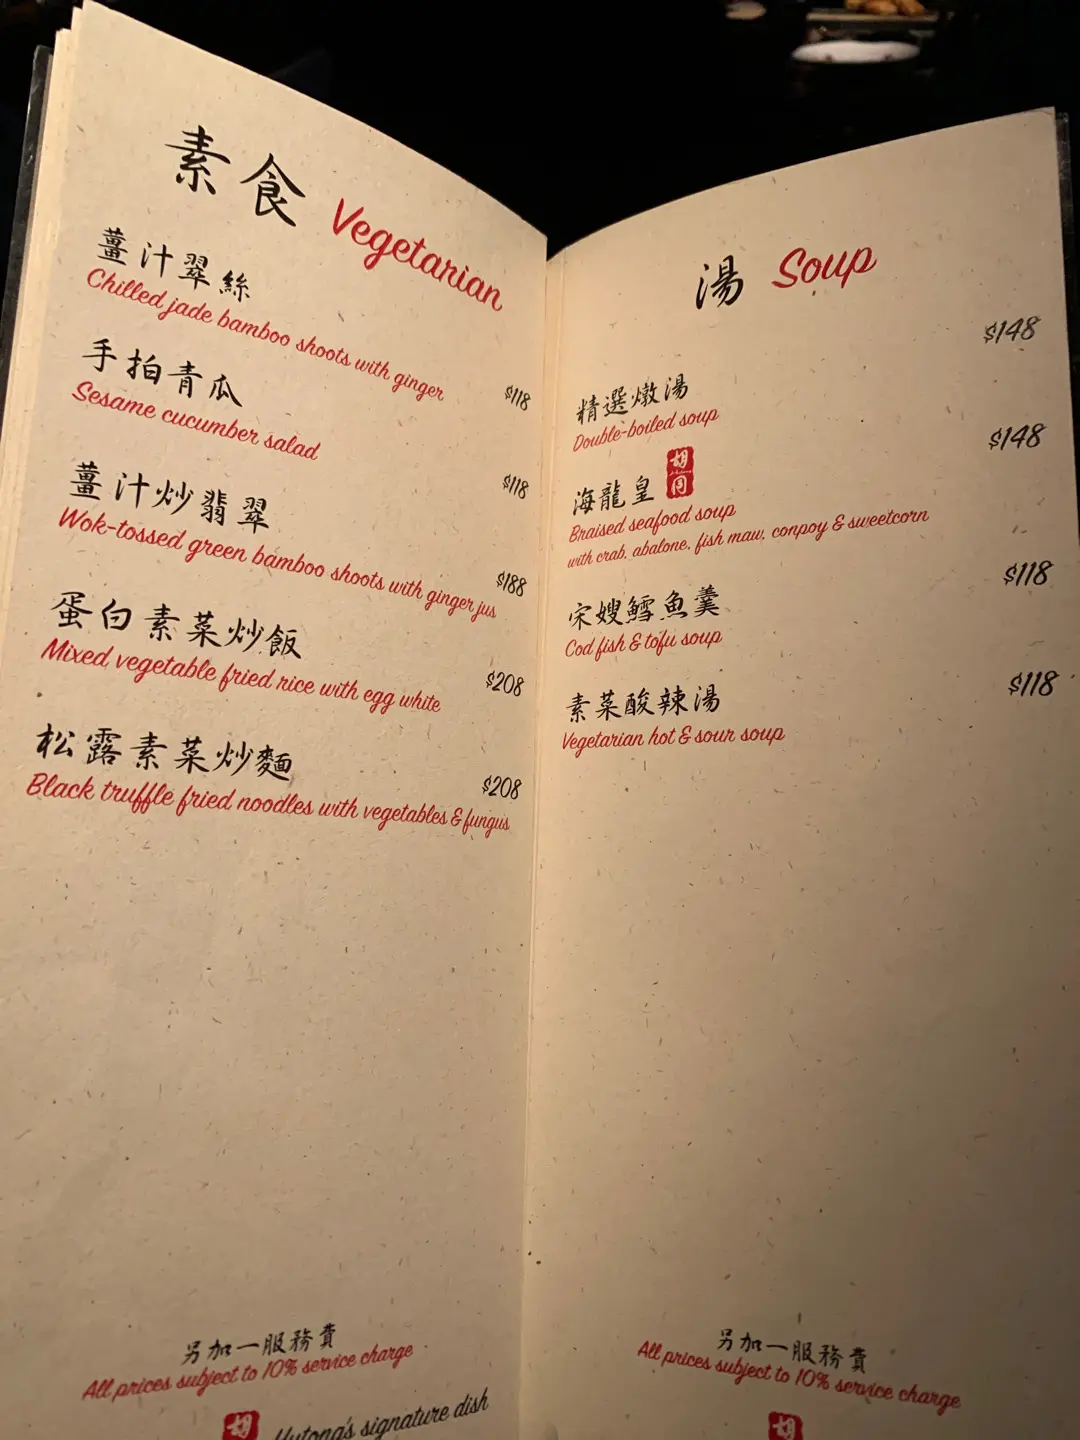 素食 Vegetarian
薑汁翠絲
Chilled jade bamboo shoots with ginger
$118
手拍青瓜
Sesame cucumber salad
$118
薑汁炒翡翠
Wok-tossed green bamboo shoots with ginger jus
$188
蛋白素菜炒飯
Mixed vegetable fried rice with egg white
$208
松露素菜炒麵
Black truffle fried noodles with vegetables & fungus
$208
另加一服務費
All prices subject to 10% service charge
胡 Hutong's signature dish
湯 Soup
$148
精選燉湯
Double-boiled soup
$148
海龍皇 胡同
Braised seafood soup
with crab, abalone, fish maw, conpoy & sweetcorn
$118
宋嫂鱈魚羹
Cod fish & tofu soup
$118
素菜酸辣湯
Vegetarian hot & sour soup
另加一服務費
All prices subject to 10% service charge
胡